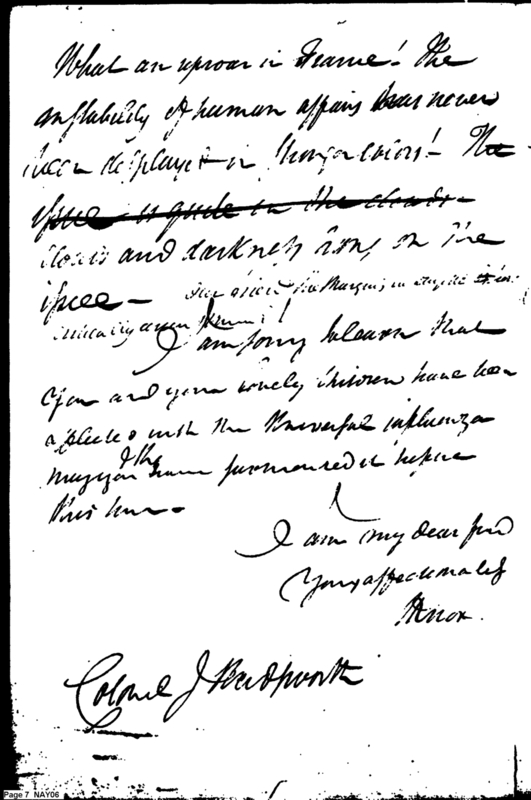 What an uproar in France! The
instability of human affairs has never
been displayed in stronger colors! The
issue is quite in the clouds -
clouds and darkness hang on the
issue - our friend the Marquis
critically
I am sorry to learn that
you and your lovely children have been
afflicted with the universal influenza
may you & the surmounted it before
this hour -
I am my dear friend
Yours affectionately
HKnox
Colonel J Wadsworth
Page 7 NAY06